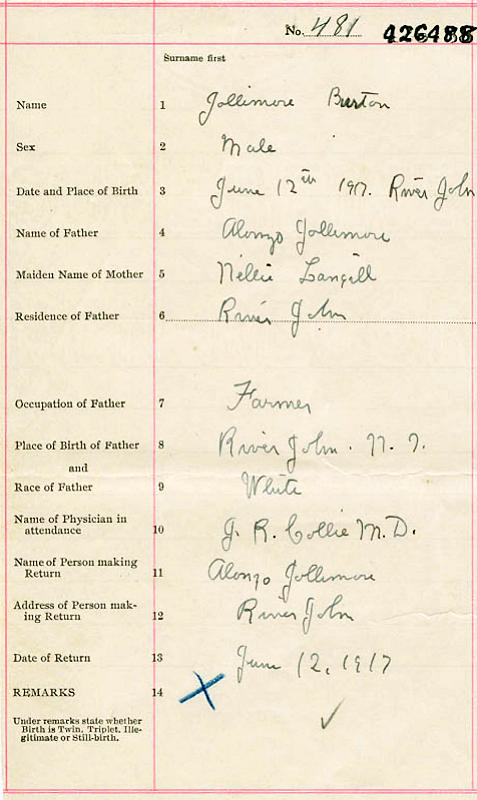 No. 481 426488
Surname first
Name 1 Jollimore Burton
Sex 2 Male
Date and Place of Birth 3 June 12th 1917. River John
Name of Father 4 Alonzo Jollimore
Maiden Name of Mother 5 Nellie Langill
Residence of Father 6 River John
Occupation of Father 7 Farmer
Place of Birth of Father 8 River John. N.S.
and
Race of Father 9 White
Name of Physician in
attendance 10 J. R. Collie M.D.
Name of Person making
Return 11 Alonzo Jollimore
Address of Person mak-
ing Return 12 River John
Date of Return 13 June 12, 1917
REMARKS 14
Under remarks state whether
Birth is Twin. Triplet. Ille-
gitimate or Still-birth.